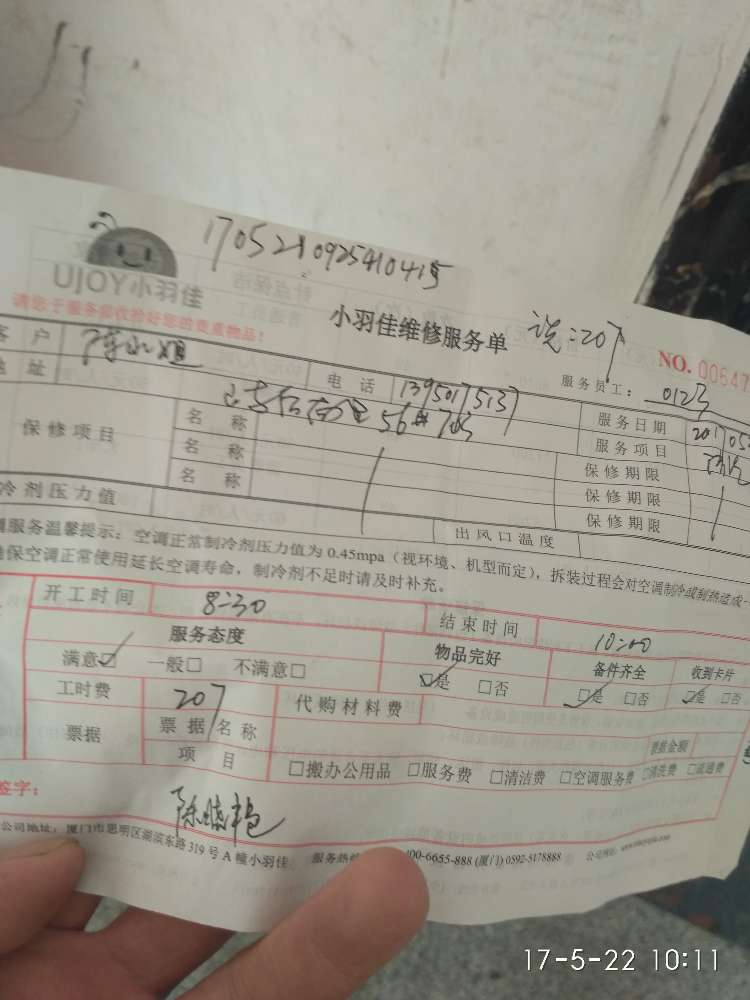 170521092541041号
UJOY小羽佳
请您于服务验收恰好您的贵重物品！
小羽佳维修服务单
NO. 00647
客 户
电 话 13950175137
服务员工： 012号
地 址
56# 703
服务日期 2017 05
保修项目
名 称
服务项目
名 称
保修期限
名 称
保修期限
保修期限
冷剂压力值
出风口温度
调服务温馨提示：空调正常制冷剂压力值为 0.45mpa（视环境、机型而定），拆装过程会对空调制冷或制热造成一
确保空调正常使用延长空调寿命，制冷剂不足时请及时补充。
开工时间 8:30
结束时间 10:00
服务态度
物品完好
备件齐全
收到卡片
满意☑ 一般□ 不满意□
☑是 □否
☑是 □否
☑是 □否
工时费 207
代购材料费
票据
票 据 名 称
票据金额
项 目
□搬办公用品 □服务费 □清洁费 □空调服务费 □清洗费 □疏通费
签字：
陈晓艳
公司地址：厦门市思明区湖滨东路 319 号 A 幢小羽佳
服务热
400-6655-888 (厦门) 0592-5178888
公司网址：
17-5-22 10:11